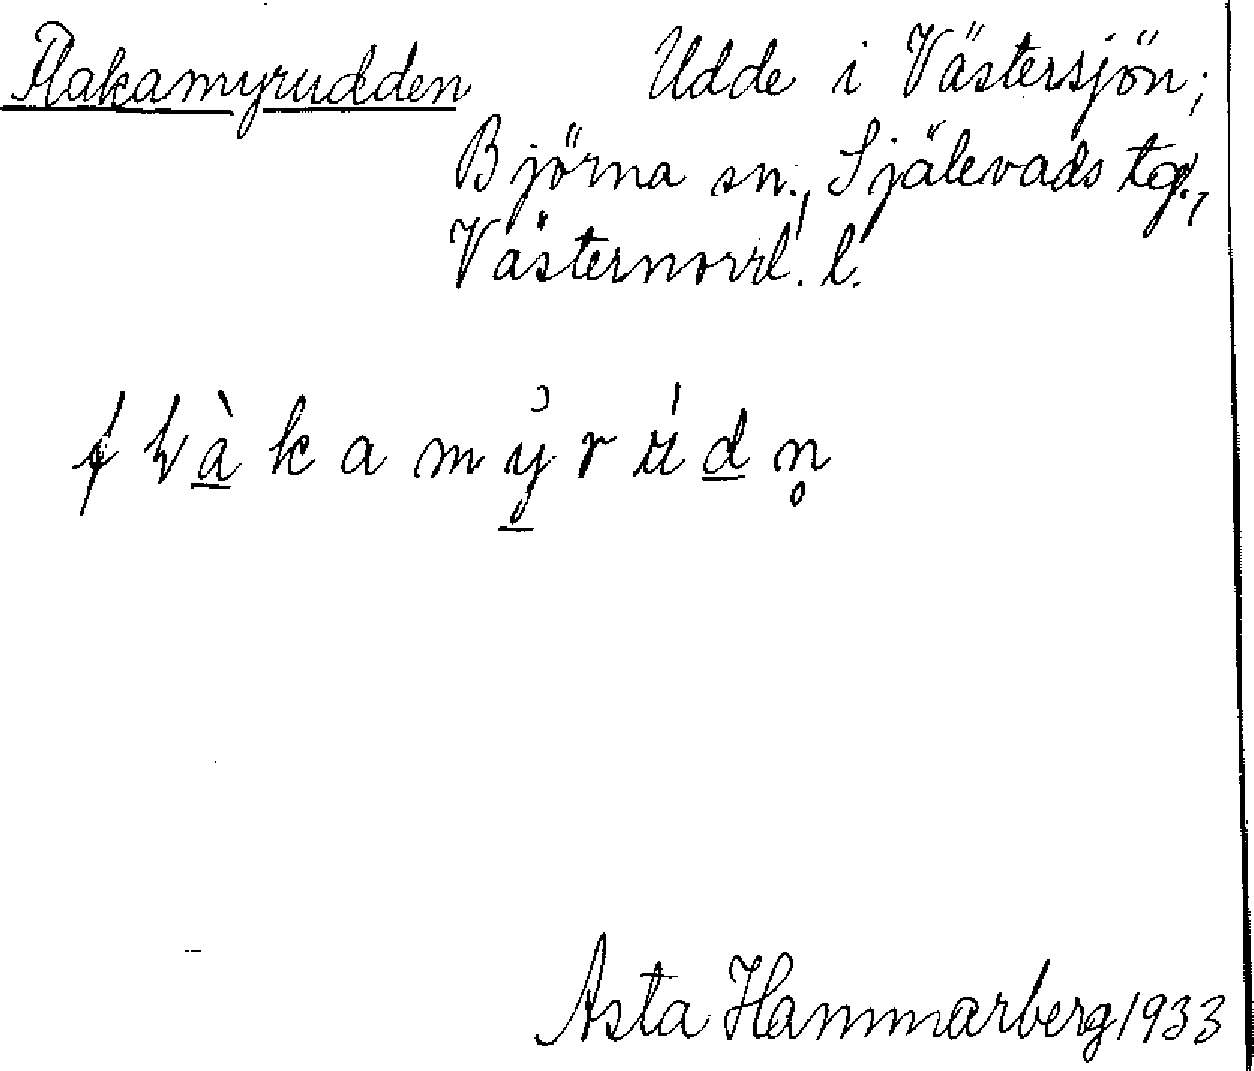 Flakamyrudden Udde i Västersjön;
Björna sn., Själevads tg.,
Västernorrl. l.
fɫàkamýrúdn̥
Asta Hammarberg 1933